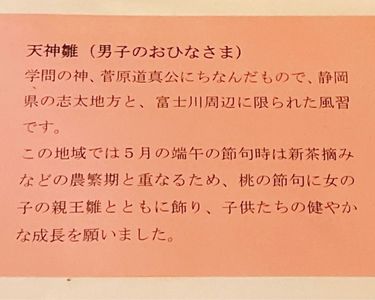 天神雛（男子のおひなさま）
学問の神、菅原道真公にちなんだもので、静岡
県の志太地方と、富士川周辺に限られた風習
です。
この地域では５月の端午の節句時は新茶摘み
などの農繁期と重なるため、桃の節句に女の
子の親王雛とともに飾り、子供たちの健やか
な成長を願いました。